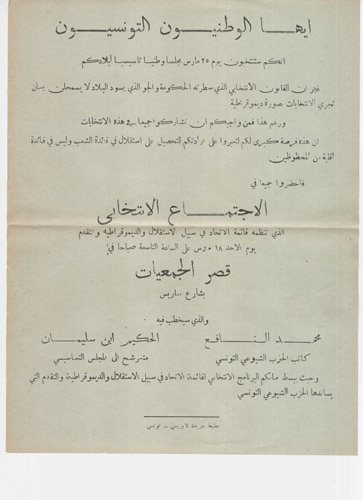 ايها الوطنيون التونسيون
انكم ستنتخبون يوم ٢٥ مارس مجلسا وطنيا تاسيسيا لبلادكم
غير ان القانون الانتخابي الذي سطرته الحكومة والجو الذي يسود البلاد لا يسمحان بان
تجري الانتخابات بصورة ديموقراطية
ورغم هذا فمن واجبكم ان تشاركوا جميعا في هذه الانتخابات
ان هذه فرصة كبرى لكم لتعبروا على ارادتكم للتحصيل على استقلال في فائدة الشعب وليس في فائدة
اقلية من المحظوظين
فاحضروا جميعا في
الاجتماع الانتخابي
الذي تنظمه قائمة الاتحاد في سبيل الاستقلال والديموقراطية والتقدم
يوم الاحد ١٨ مارس على الساعة التاسعة صباحا في
قصر الجمعيات
بشارع باريس
والذي سيخطب فيه
محمد النافع
كاتب الحزب الشيوعي التونسي
الحكيم ابن سليمان
مترشح الى المجلس التاسيسي
وحيث يبسط عليكم البرنامج الانتخابي لقائمة الاتحاد في سبيل الاستقلال والديموقراطية والتقدم التي
يساندها الحزب الشيوعي التونسي
مطبعة جريدة لابريس - تونس